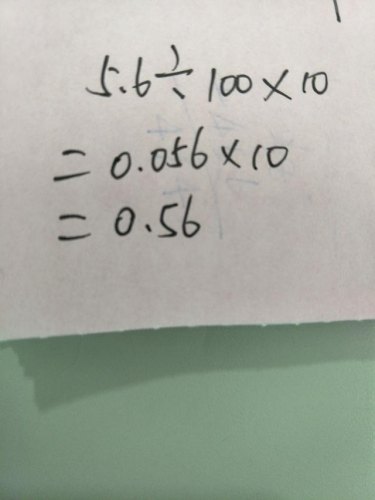 5.6÷100×10
=0.056×10
=0.56